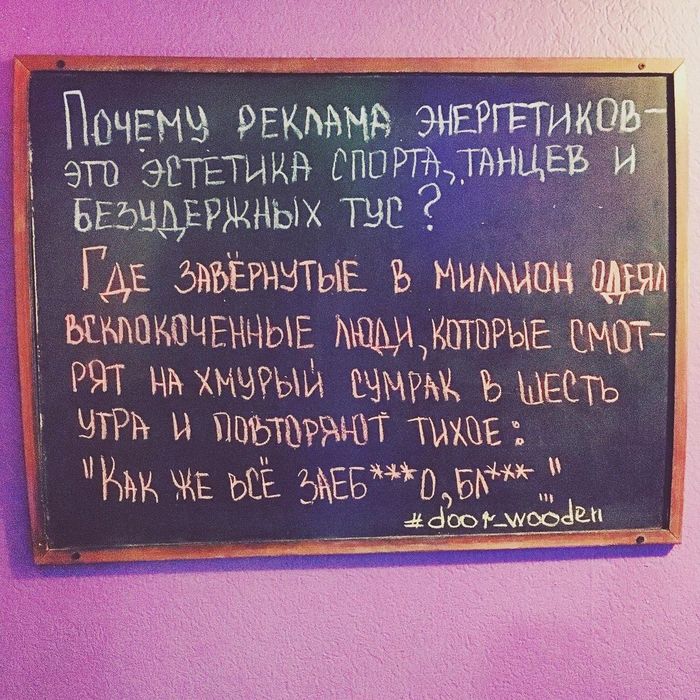 Почему реклама энергетиков-
это эстетика спорта, танцев и
безудержных тус?
Где завёрнутые в миллион одеял
всклокоченные люди, которые смот-
рят на хмурый сумрак в шесть
утра и повторяют тихое:
"Как же всё заеб***о, бл***..."
#door_wooden